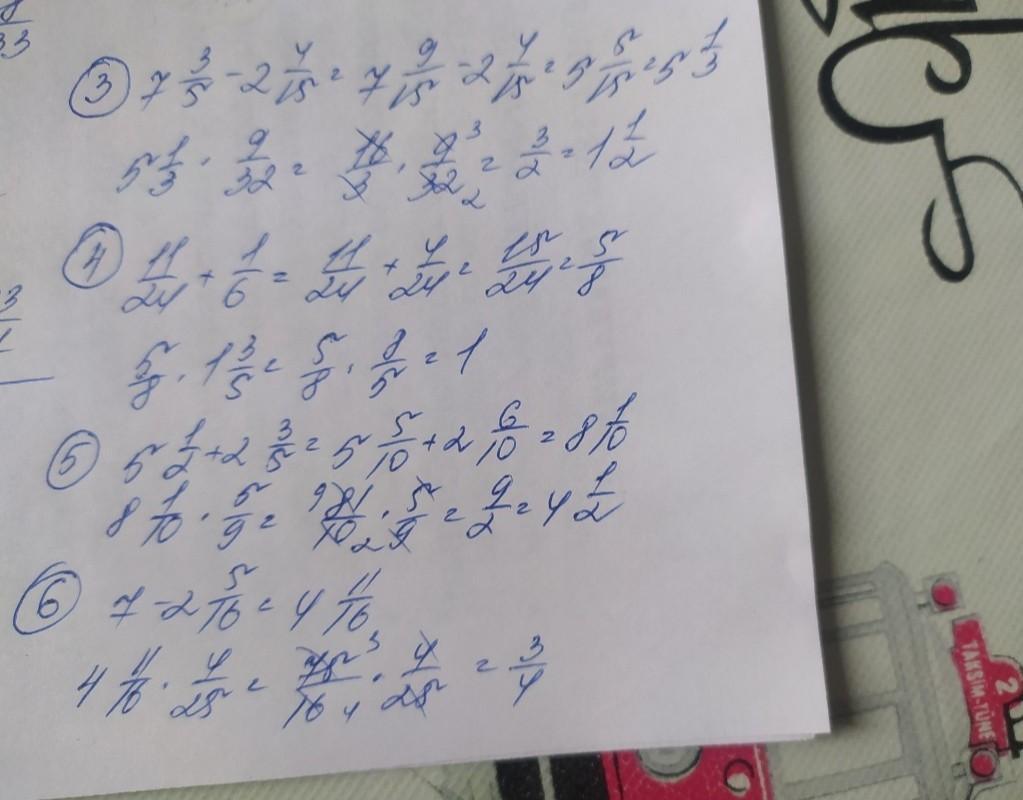 8/33
③ 7 3/5 - 2 4/15 = 7 9/15 - 2 4/15 = 5 5/15 = 5 1/3
5 1/3 · 9/32 = 16/3 · 9/32 3 2 = 3/2 = 1 1/2
④ 11/24 + 1/6 = 11/24 + 4/24 = 15/24 = 5/8
5/8 · 1 3/5 = 5/8 · 8/5 = 1
⑤ 5 1/2 + 2 3/5 = 5 5/10 + 2 6/10 = 8 1/10
8 1/10 · 5/9 = 9 81/10 2 · 5/9 = 9/2 = 4 1/2
⑥ 7 - 2 5/16 = 4 11/16
4 11/16 · 4/25 = 75/16 3 4 · 4/25 = 3/4
TAKSIM-TÜNE
2